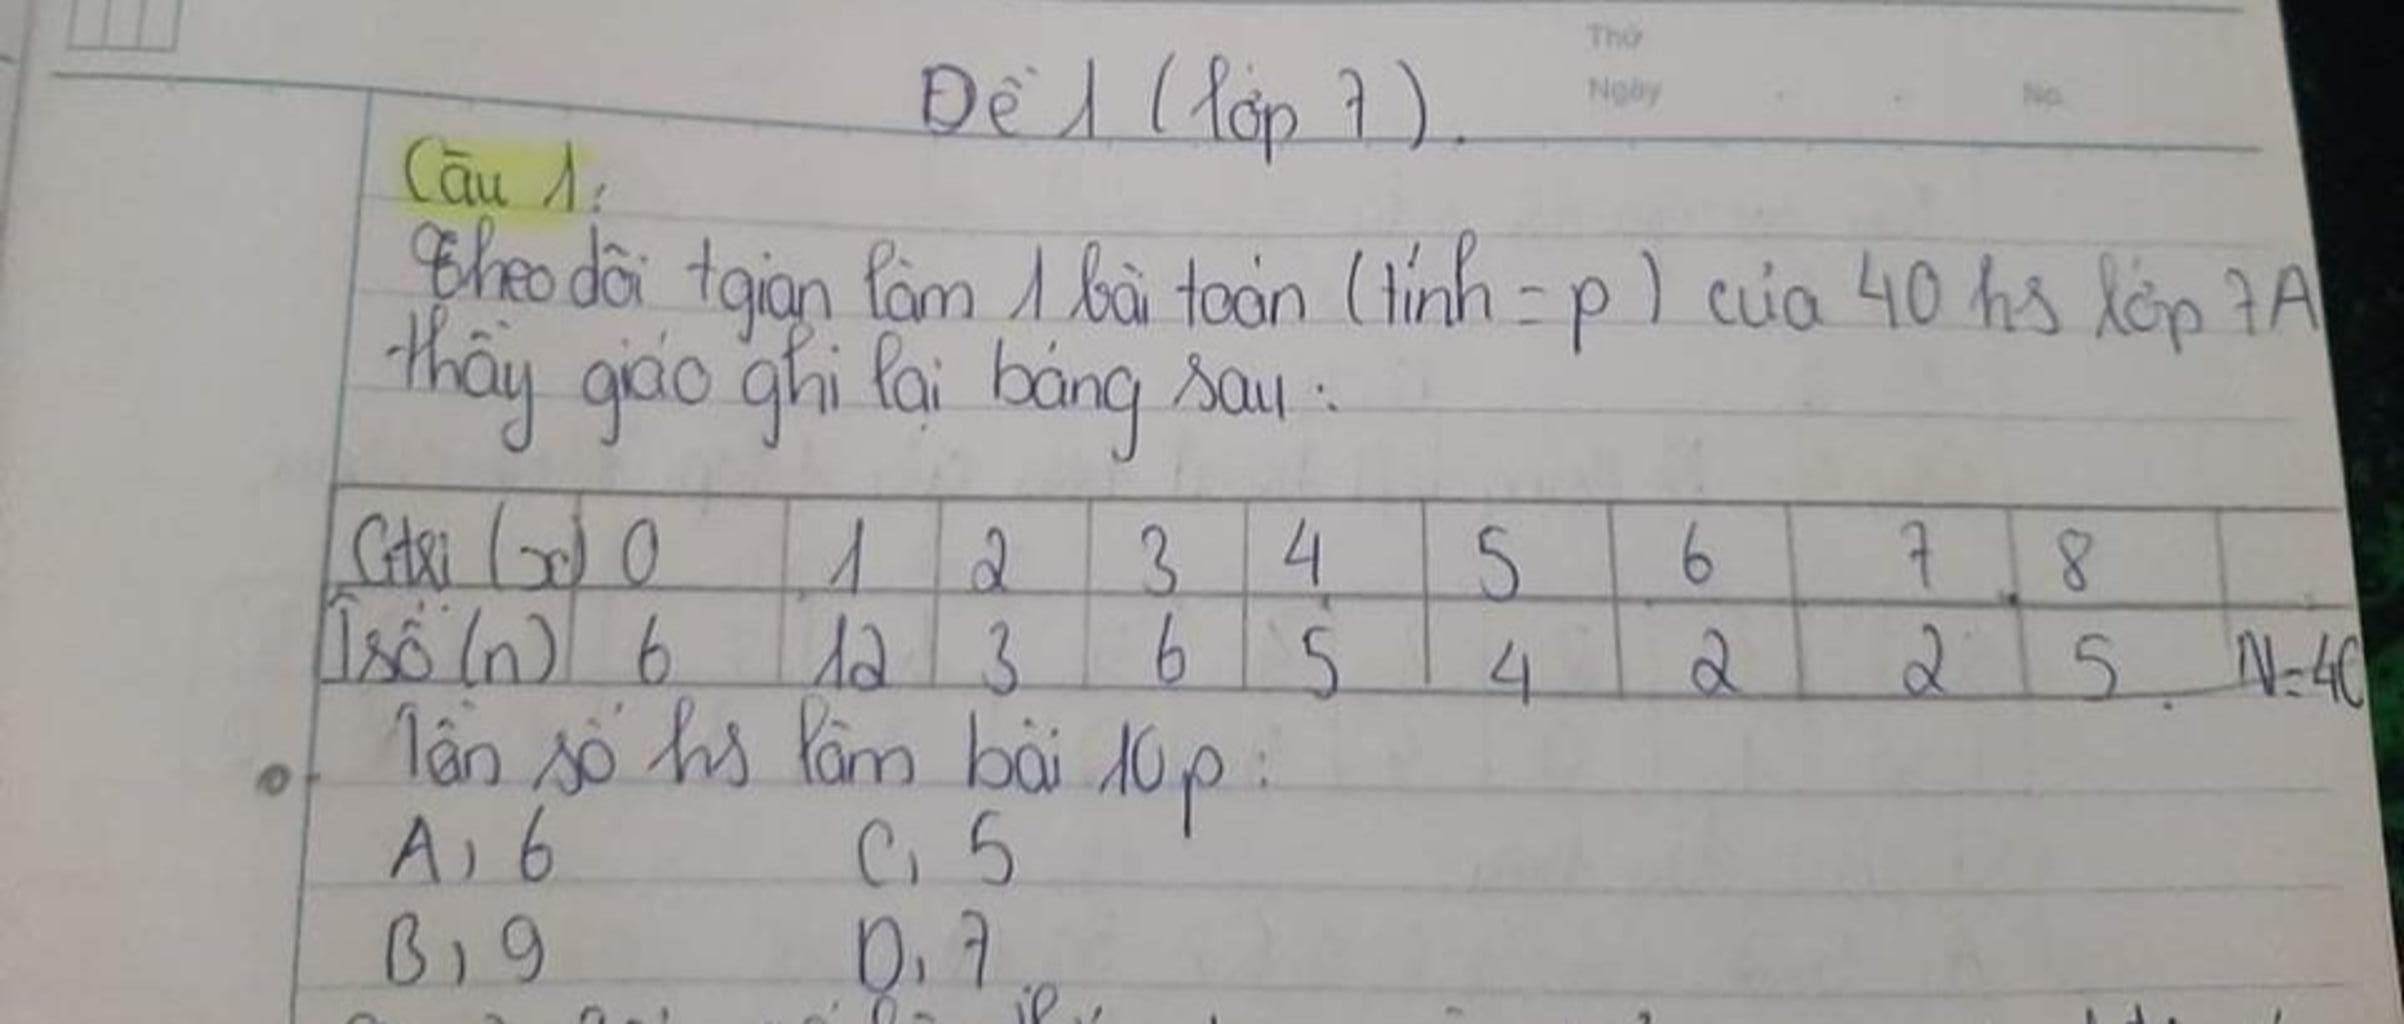 Thứ
Ngày No.
Đề 1 (lớp 7).
Câu 1:
Theo dõi tgian làm 1 bài toán (tính = p) của 40 hs lớp 7A
thầy giáo ghi lại bảng sau:
Gtrị (x) 0 1 2 3 4 5 6 7 8
Tsố (n) 6 12 3 6 5 4 2 2 5 N=40
Tần số hs làm bài 10p:
A, 6 C, 5
B, 9 D, 7